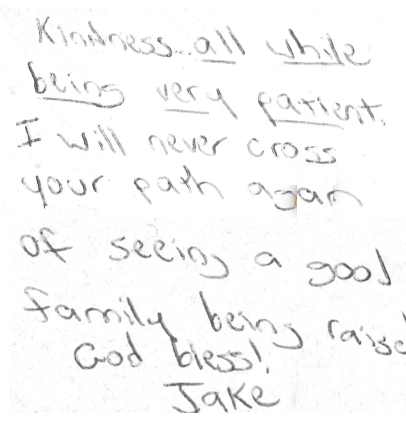 Kindness...all while
being very patient.
I will never cross
your path agan
of seeing a good
family being raise
God bless!
Jake